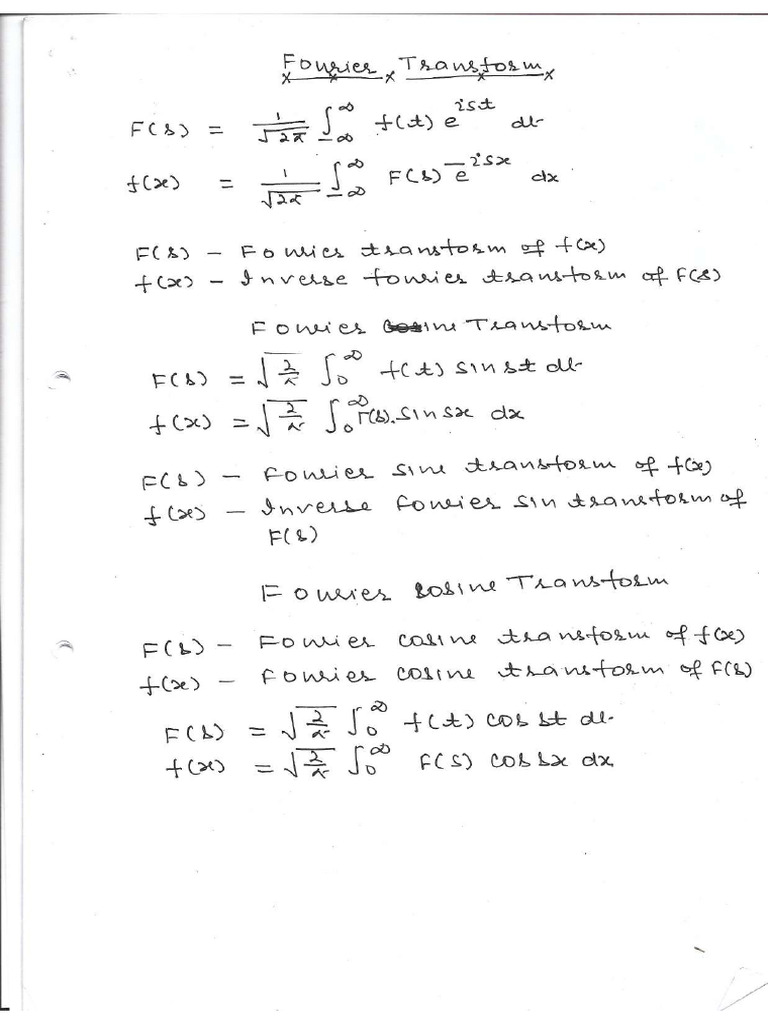 Fourier Transform
F(s) = 1/√2π ∫_-∞^∞ f(t) e^ist dt
f(x) = 1/√2π ∫_-∞^∞ F(s) e^-isx dx
F(s) – Fourier transform of f(x)
f(x) – Inverse fourier transform of F(s)
Fourier sine Transform
F(s) = √2/π ∫_0^∞ f(t) sin st dt
f(x) = √2/π ∫_0^∞ F(s). sin sx dx
F(s) – Fourier sine transform of f(x)
f(x) – Inverse fourier sin transform of
F(s)
Fourier cosine Transform
F(s) – Fourier cosine transform of f(x)
f(x) – Fourier cosine transform of F(s)
F(s) = √2/π ∫_0^∞ f(t) cos st dt
f(x) = √2/π ∫_0^∞ F(s) cos sx dx